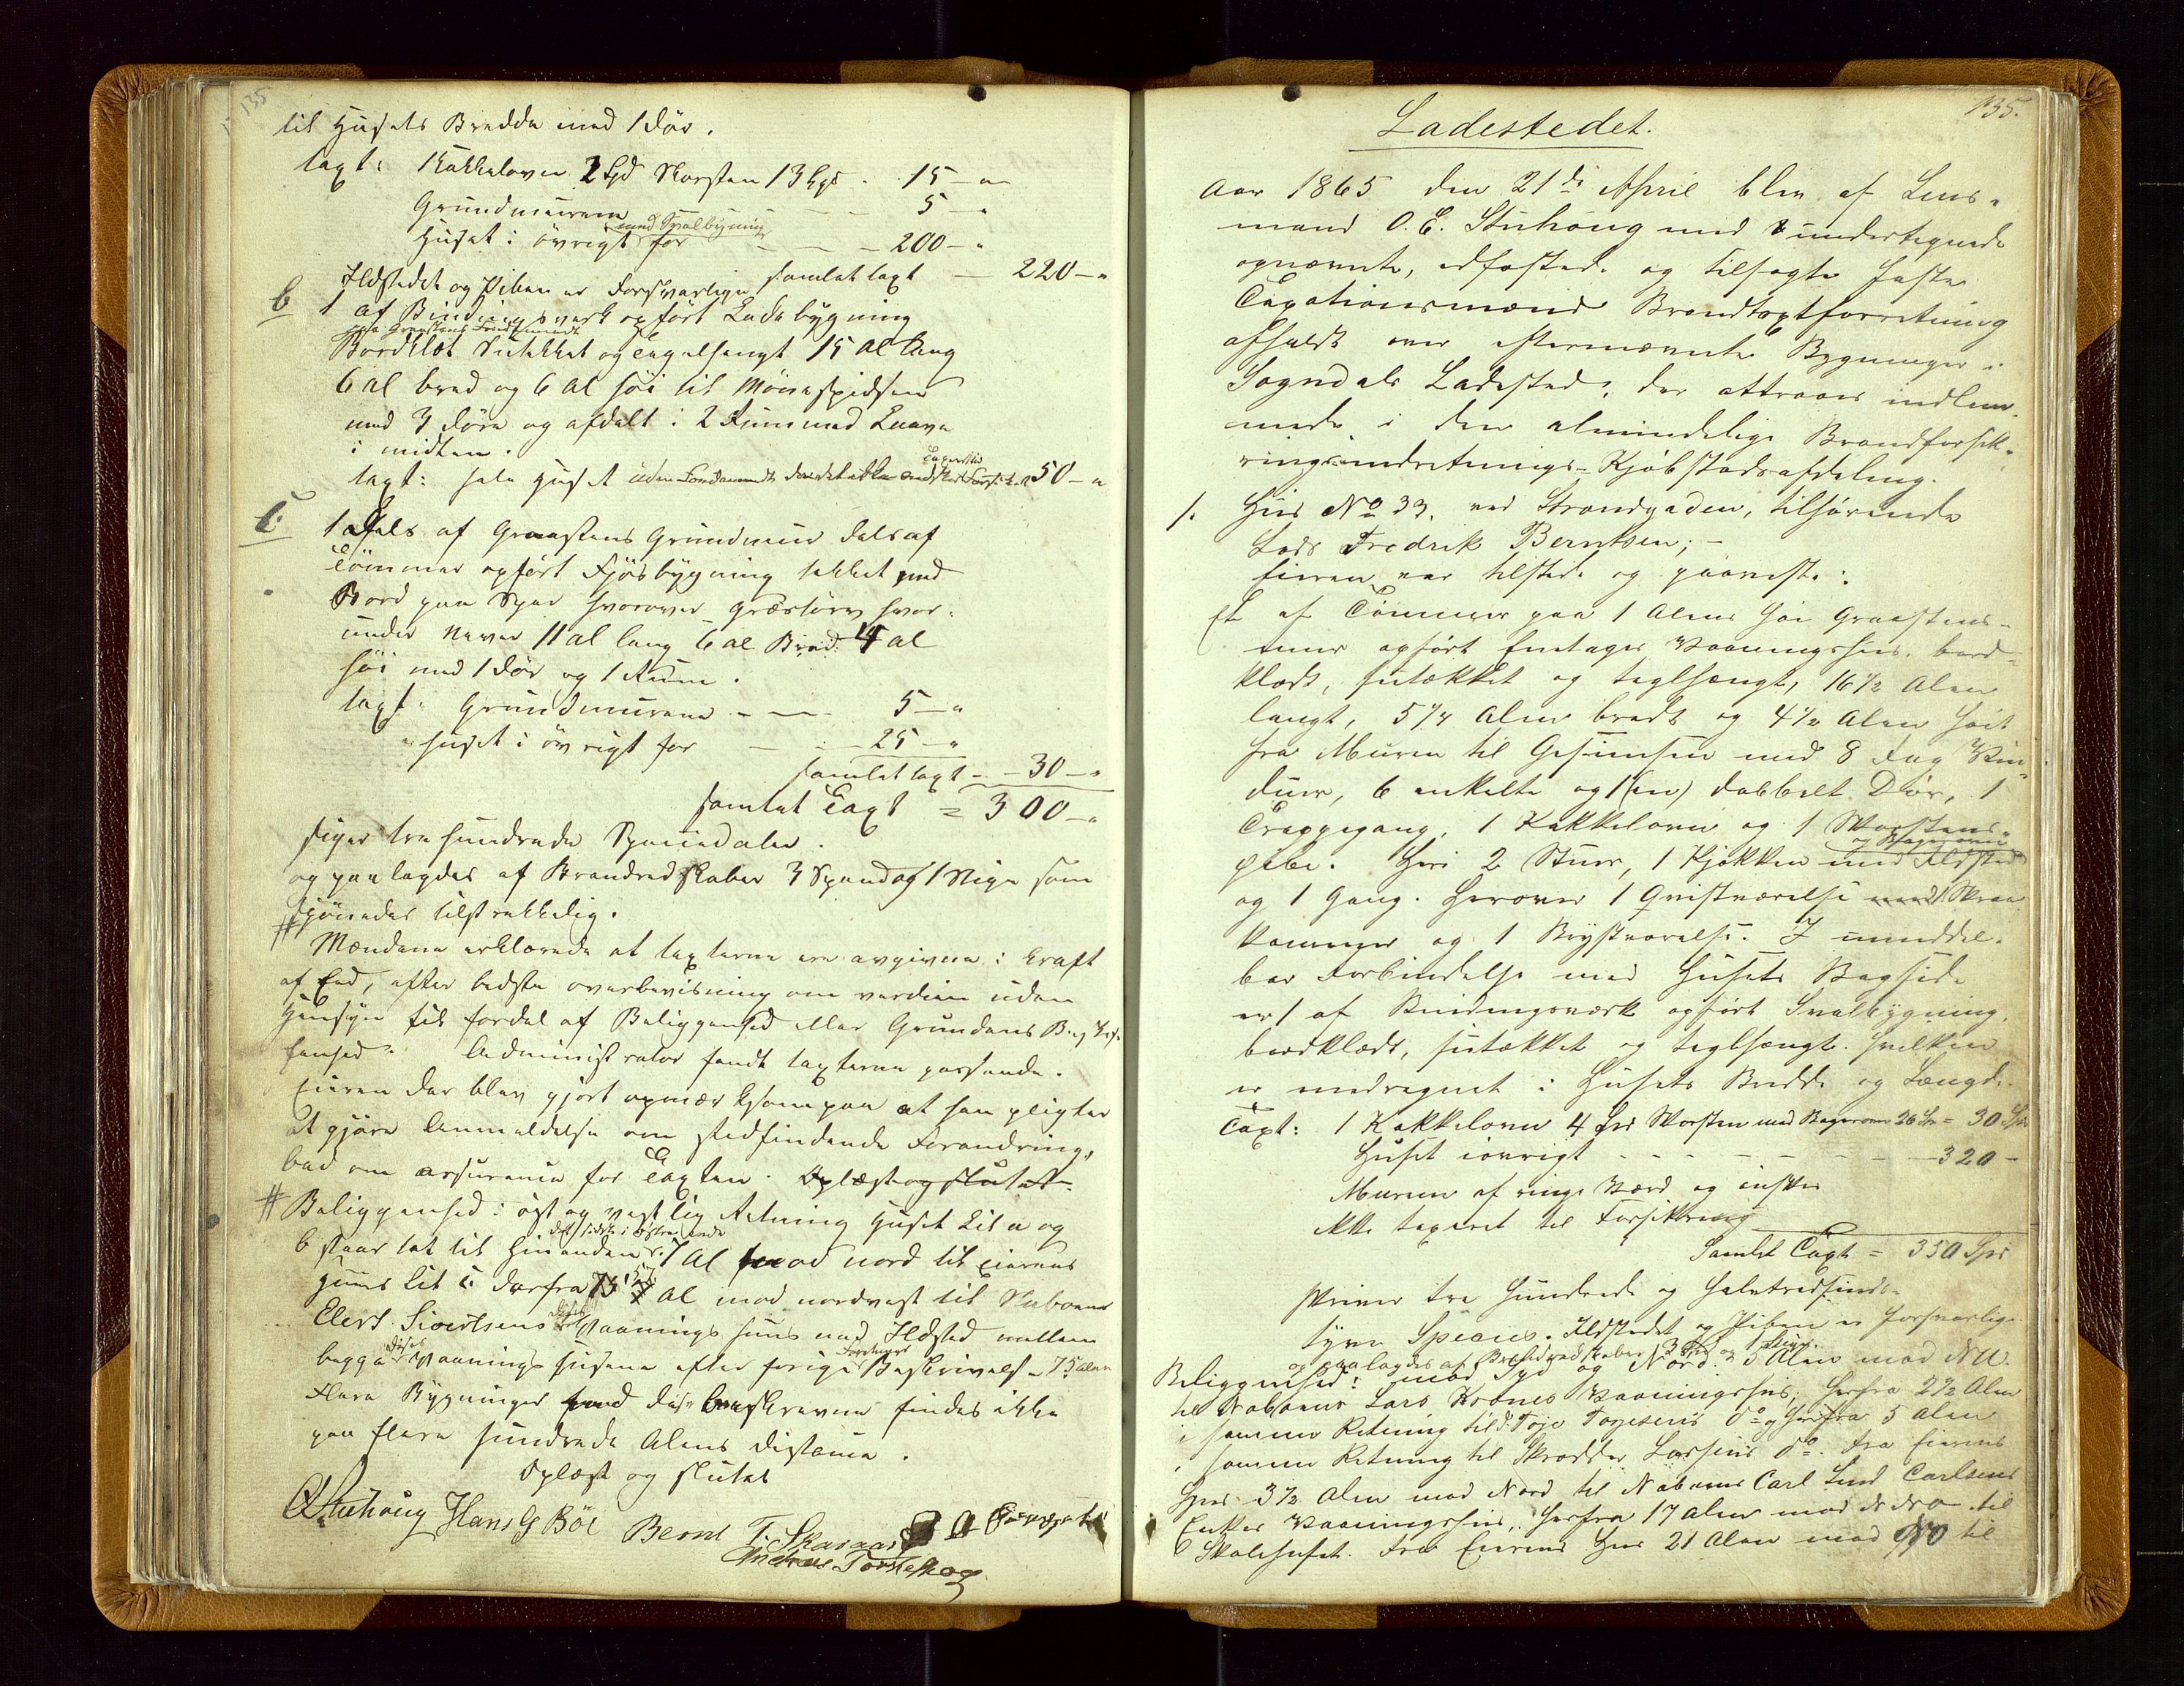 135
til Husets Bredde med 1 Dör.
taxt: 1 Kakkelovn 2 Spd Skorsten 13 Spd . 15 — "
Grundmuren — — — 5 — "
med Svalbygning
Huset i övrigt for — — — 200 — "
Ildstedet og Piben er Forsvarlige samlet taxt — 220 — "
b 1 af Bindingsverk opfört Ladebygning
paa Graastens Fundament
Bordklæt Sutekket og teglhengt 15 Al lang
6 Al bred og 6 Al höi til Mönespidsen
med 3 Döre og afdelt i 2 Rum med Laave
i midten.
taxt: hele Huset uden Fondamendt 50 — "
c 1 Dels af Graastens Grundmur dels af
Tömmer opfört Fjösbygning tekket med
Bord paa Sper hvorover græstörv hvor-
under Never 11 al lang 6 al Bred 4 al
höi med 1 Dör og 1 Rum.
taxt: Grundmurene — — 5 — "
" Huset i övrigt for — — 25 — "
samlet taxt — 30 — "
samlet Taxt = 300 — "
siger tre hundrede Speciedaler.
og paalagdes af Brandredskaber 3 Spand og 1 Stige som
skjönnedes tilstrekkelig.
# Mændene erklærede at taxterne ere avgivne i kraft
af Eed, efter bedste overbevisning om verdien uden
Hensyn til fordel af Beliggenhed eller Grundens Beskaf-
fenhed. Administrator fandt taxterne passende.
Eieren der blev gjort opmærksom paa at han pligter
at gjöre Anmeldelse om stedfindende Forandring,
bad om assurance for Taxten. Oplæst og sluttet
# Beliggenhed: öst og vestlig Retning Huset Lit a og
det sidste i östre ende
b staar tæt til hinanden. 7 Al mod nord til Eierens
Huus Lit c derfra 75 Al mod nordvest til Naboens
Elert Sivertsens Vaanings huus med Ildsted mellem
begge disse Vaaningshusene efter forige Beskrivelse 75 alen
Flere Bygninger end disse beskrevne findes ikke
paa flere hundrede Alens distance.
Oplæst og sluttet
OStuhoug Hans G Böe Bernt T. Skaraas
Andreas Torsteskog
135.
Ladestedet.
Aar 1865 den 21de April blev af Lens-
mand O. E. Stuhoug med undertegnede
opnævnte, edfæstede og tilsagte faste
Taxationsmænd Brandtaxtforretning
afholdt over efternævnte Bygninger i
Sogndals Ladested, der attraaes indlem-
mede i den almindelige Brandforsik-
ringsindretnings-Kjöbstadsafdeling.
1. Huus No 33. ved Strandgaden, tilhörende
Lods Fredrik Berntsen; -
Eieren var tilstede og paaviste:
Et af Tömmer paa 1 Alens höi Graastens-
muur opfört Enetages Vaaningshuus bord-
klædt, sutækket og teglhængt, 16½ Alen
langt, 5¼ Alen bredt og 4½ Alen höit
fra Muren til Gesimsen med 8 Fag Vin-
duer, 6 enkelte og 1 (en) dobbelt Dör, 1
Trappegang, 1 Kakkelovn og 1 Skorstens-
og Bagerovn
pibe. Heri 2 Stuer, 1 Kjökken med Ildsted
og 1 Gang. Herover 1 Qvistværelse med 1 Skraa
kammer og 1 Brystværelse. I umiddel-
bar Forbindelse med Husets Bagside
er 1 af Bindingsværk opfört Svalbygning,
bordklædt, sutækket og teglhængt, hvilken
er medregnet i Husets Bredde og Længde.
Taxt: 1 Kakkelovn 4 Spd Skorsten med Bagerovn 26 Spd = 30 Spd
Huset iövrigt - - - - - 320 -
Muren af ringe Værd og önskes
ikke taxeret til Forsikkring
Samlet Taxt = 350 Spd
skriver tre Hundrede og halvtredsinds-
tyve Species. Ildstedet og Piben er forsvarlige
og paalagdes af Brandredskaber 3 Spand og 1 Stige.
Beliggenhed: mod Syd og Nord. 5 Alen mod NV.
til Naboens Lars Krones Vaaningshuus, herfra 2½ Alen
i samme Retning til Toje Tojesens do og herfra 5 Alen
i samme Retning til Skrædder Larsens do. Fra Eierens
Huus 3½ Alen mod Nord til Naboens Carl Lund Carlsens
Enkes Vaaningshuus, herfra 17 Alen mod NNO til
Skolehuset. Fra Eierens Huus 21 Alen mod NO til